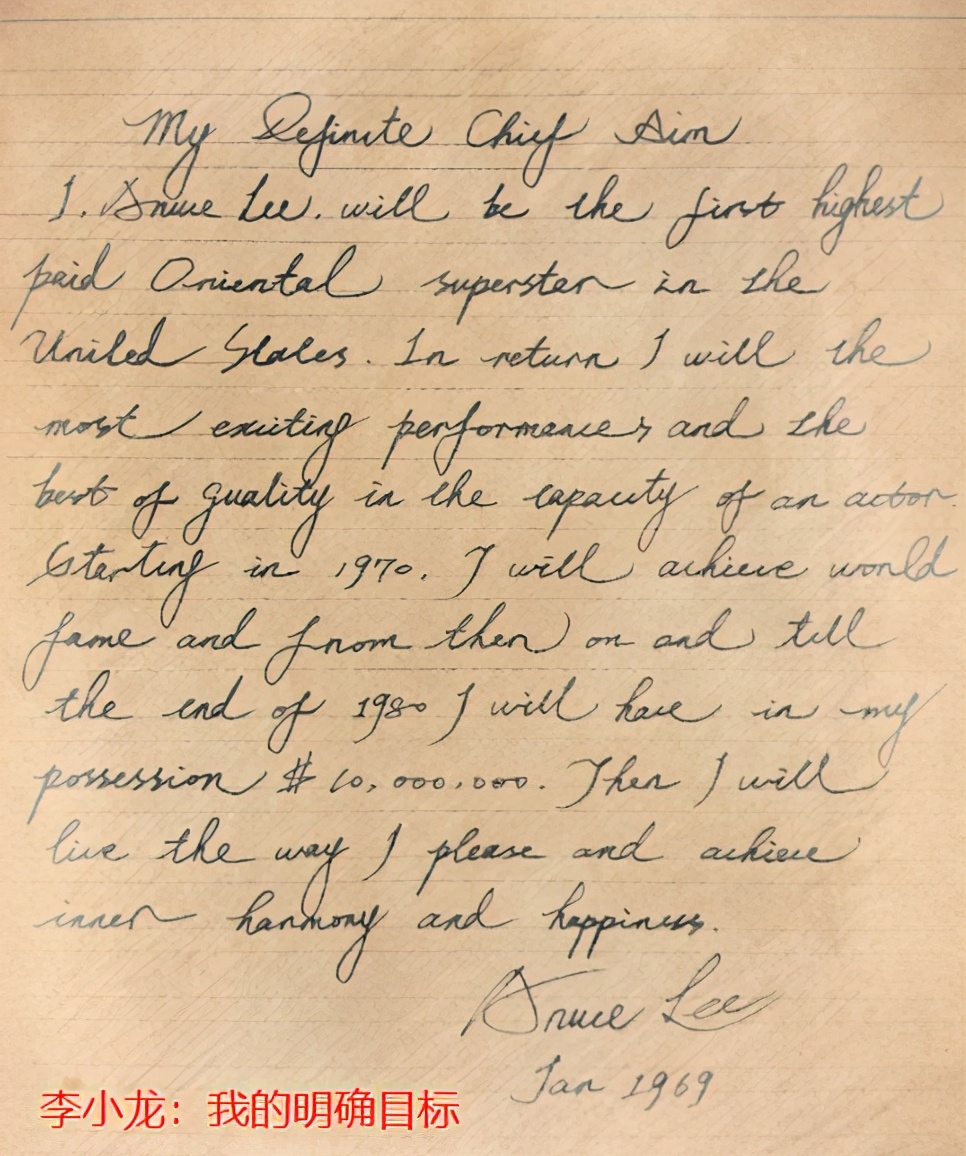 My Definite Chief Aim
I. Bruce Lee. will be the first highest
paid Oriental superster in the
United States. In return I will the
most exciting performances and the
best of quality in the capacity of an actor.
Starting in 1970. I will achieve world
fame and from then on and till
the end of 1980 I will have in my
possession $ 10,000,000. Then I will
live the way I please and achieve
inner harmony and happiness.
Bruce Lee
Jan 1969
李小龙：我的明确目标